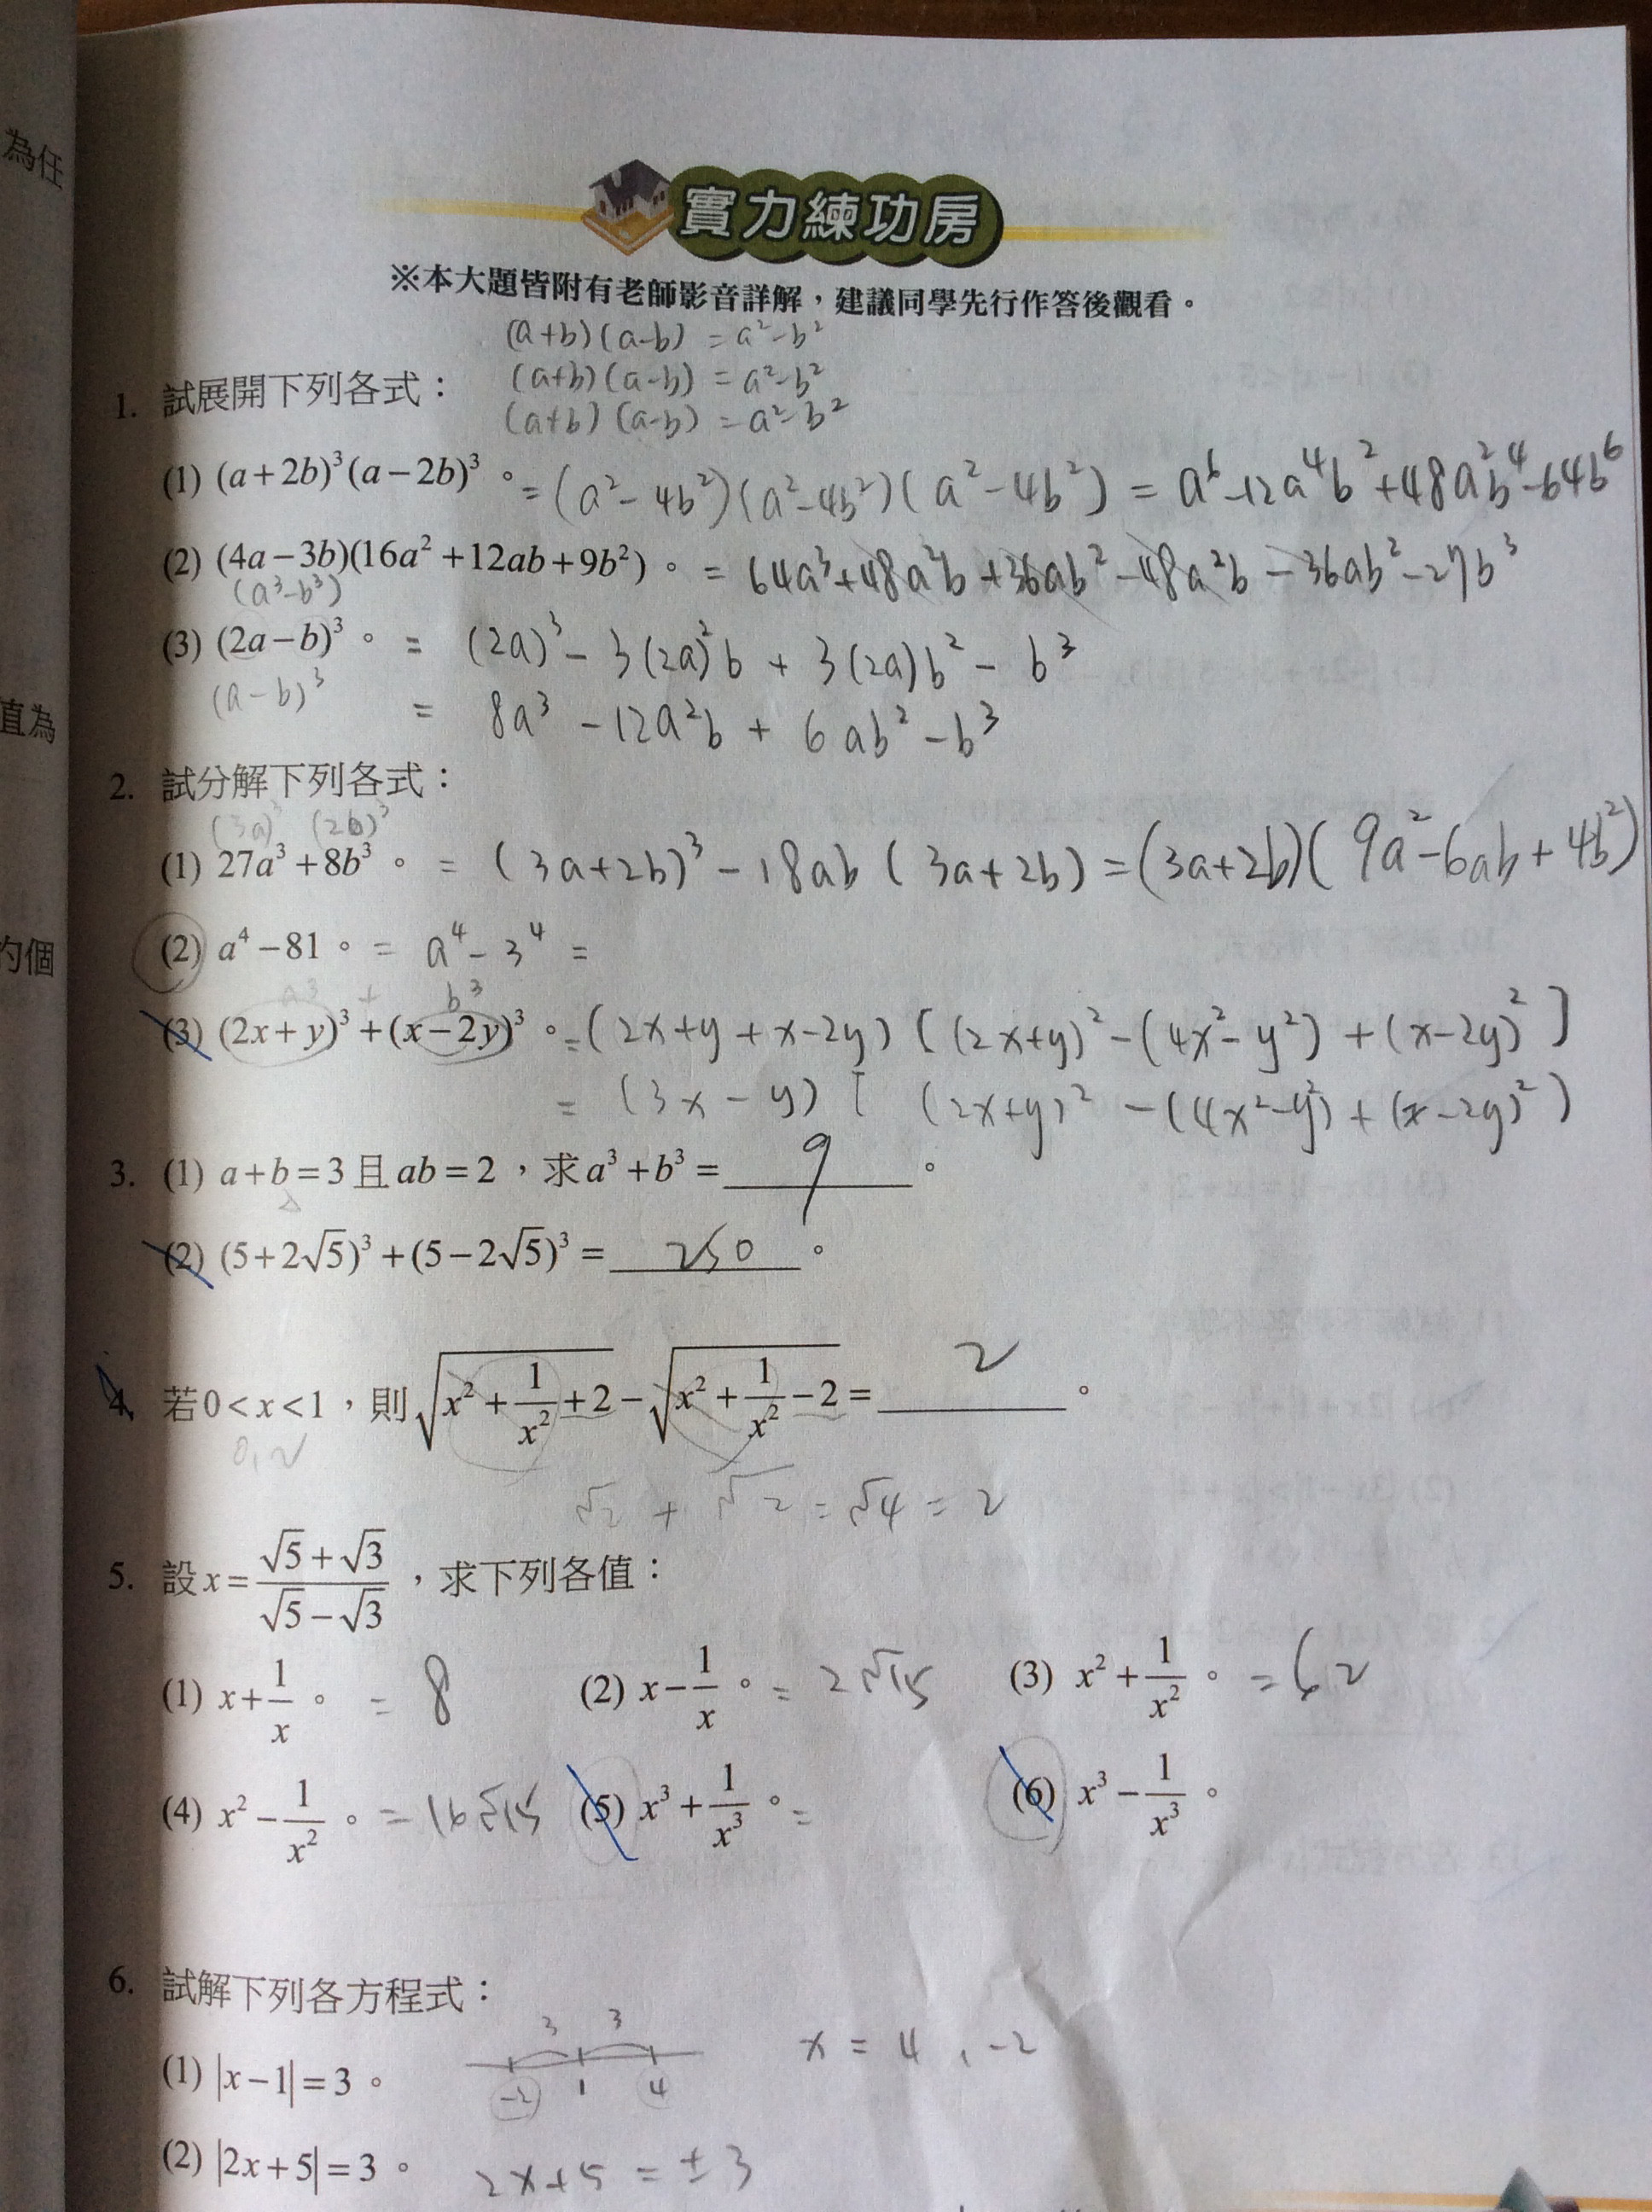 為任
直為
的個
實力練功房
※本大題皆附有老師影音詳解，建議同學先行作答後觀看。
(a+b)(a-b) = a²-b²
1. 試展開下列各式： (a+b)(a-b) = a²-b²
(a+b)(a-b) = a²-b²
(1) (a+2b)³(a−2b)³。= (a²-4b²)(a²-4b²)(a²-4b²) = a⁶-12a⁴b²+48a²b⁴-64b⁶
(2) (4a−3b)(16a²+12ab+9b²)。= 64a³+48a²b+36ab²-48a²b-36ab²-27b³
(a³-b³)
(3) (2a−b)³。= (2a)³-3(2a)²b+3(2a)b²-b³
(a-b)³ = 8a³-12a²b+6ab²-b³
2. 試分解下列各式：
(3a)³ (2b)³
(1) 27a³+8b³。= (3a+2b)³-18ab(3a+2b) = (3a+2b)(9a²-6ab+4b²)
(2) a⁴−81。= a⁴-3⁴ =
a³ + b³
(3) (2x+y)³+(x−2y)³。= (2x+y+x-2y)[(2x+y)²-(4x²-y²)+(x-2y)²]
= (3x-y)[(2x+y)²-(4x²-y²)+(x-2y)²)
3. (1) a+b=3且ab=2，求a³+b³= 9 。
(2) (5+2√5)³+(5−2√5)³= 250 。
4. 若0<x<1，則√(x²+1/x²+2)−√(x²+1/x²−2)= 2 。
√2 + √2 = √4 = 2
5. 設x=(√5+√3)/(√5−√3)，求下列各值：
(1) x+1/x。= 8 (2) x−1/x。= 2√15 (3) x²+1/x²。= 62
(4) x²−1/x²。= 16√15 (5) x³+1/x³。= (6) x³−1/x³。
6. 試解下列各方程式：
3 3 x = 4 , -2
(1) |x−1|=3。 -2 1 4
(2) |2x+5|=3。 2x+5 = ±3